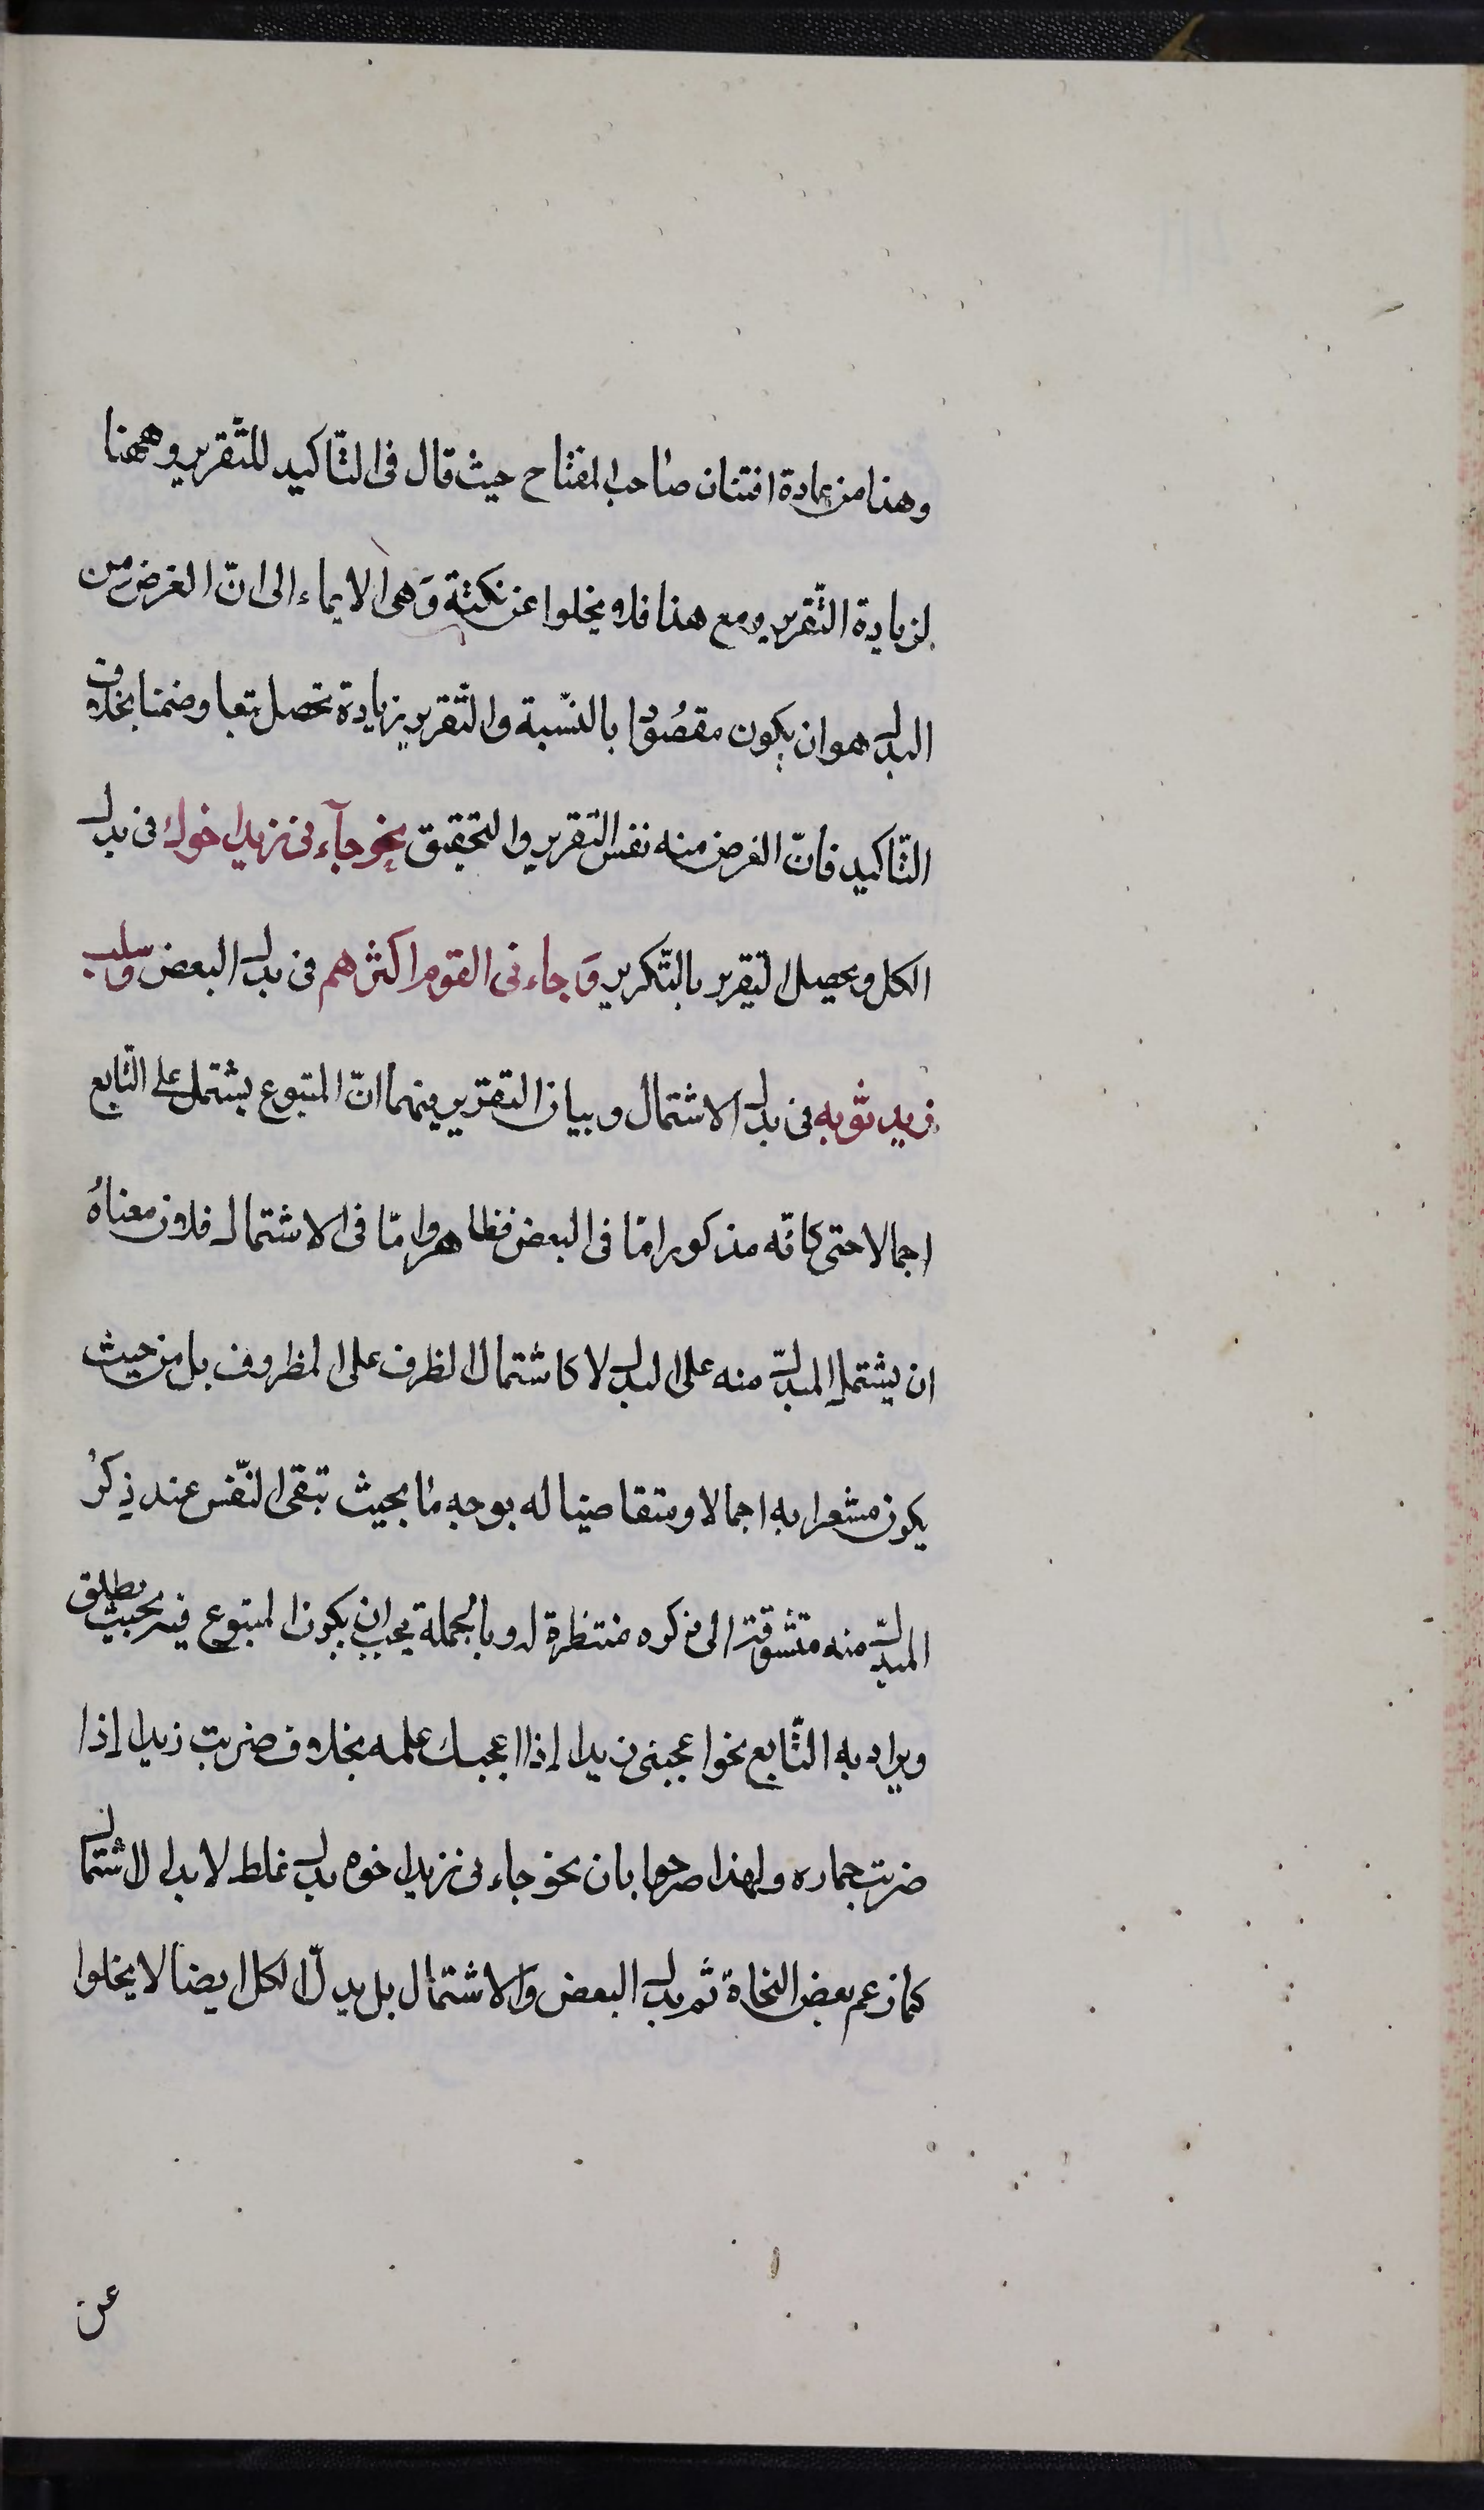 وهذا من عادة افتنان صاحب المفتاح حيث قال فى التّاكيد للتّقرير وههنا
لزيادة التّقرير ومع هذا فلا يخلوا عن نكتة وَهى الايماء الى انّ الغرض من
البدل هو ان يكون مقصُودا بالنّسبة والتّقرير زيادة تحصل تبعا وضمنا بخلاف
التّاكيد فانّ الغرض منه نفس التقرير والتحقيق نحو جآءنى زيد اخوك فى بدل
الكل ويحصل التقرير بالتّكرير وَجاءنى القوم اكثرهم فى بدل البعض وسلب
زيد ثوبه فى بدل الاشتمال وبيان التقرير فيهما انّ المتبوع يشتمل على التّابع
اجمالا حتى كانّه مذكور امّا فى البعض فظاهر وامّا فى الاشتمال فلان معناهُ
ان يشتمل المبدل منه على البدل لا كاشتمال الظرف على المظروف بل من حيث
يكون مشعرا به اجمالا ومتقاضيا له بوجه ما بحيث تبقى النّفس عند ذِكر
المبدل منه متشوقة الى ذكره منتظرة له وبالجملة يجب ان يكون المتبوع فيه بحيث يطلق
ويراد به التّابع نحو اعجبنى زيدا إذا اعجبك علمه بخلاف ضربت زيدا إذا
ضربت حماره ولهذا صرحوا بان نحو جاءنى زيد اخوه بدل غلط لا بدل الاشتمال
كما زعم بعض النحاة ثم بدل البعض وَالاشتمال بل بدل الكل ايضا لا يخلوا
عن